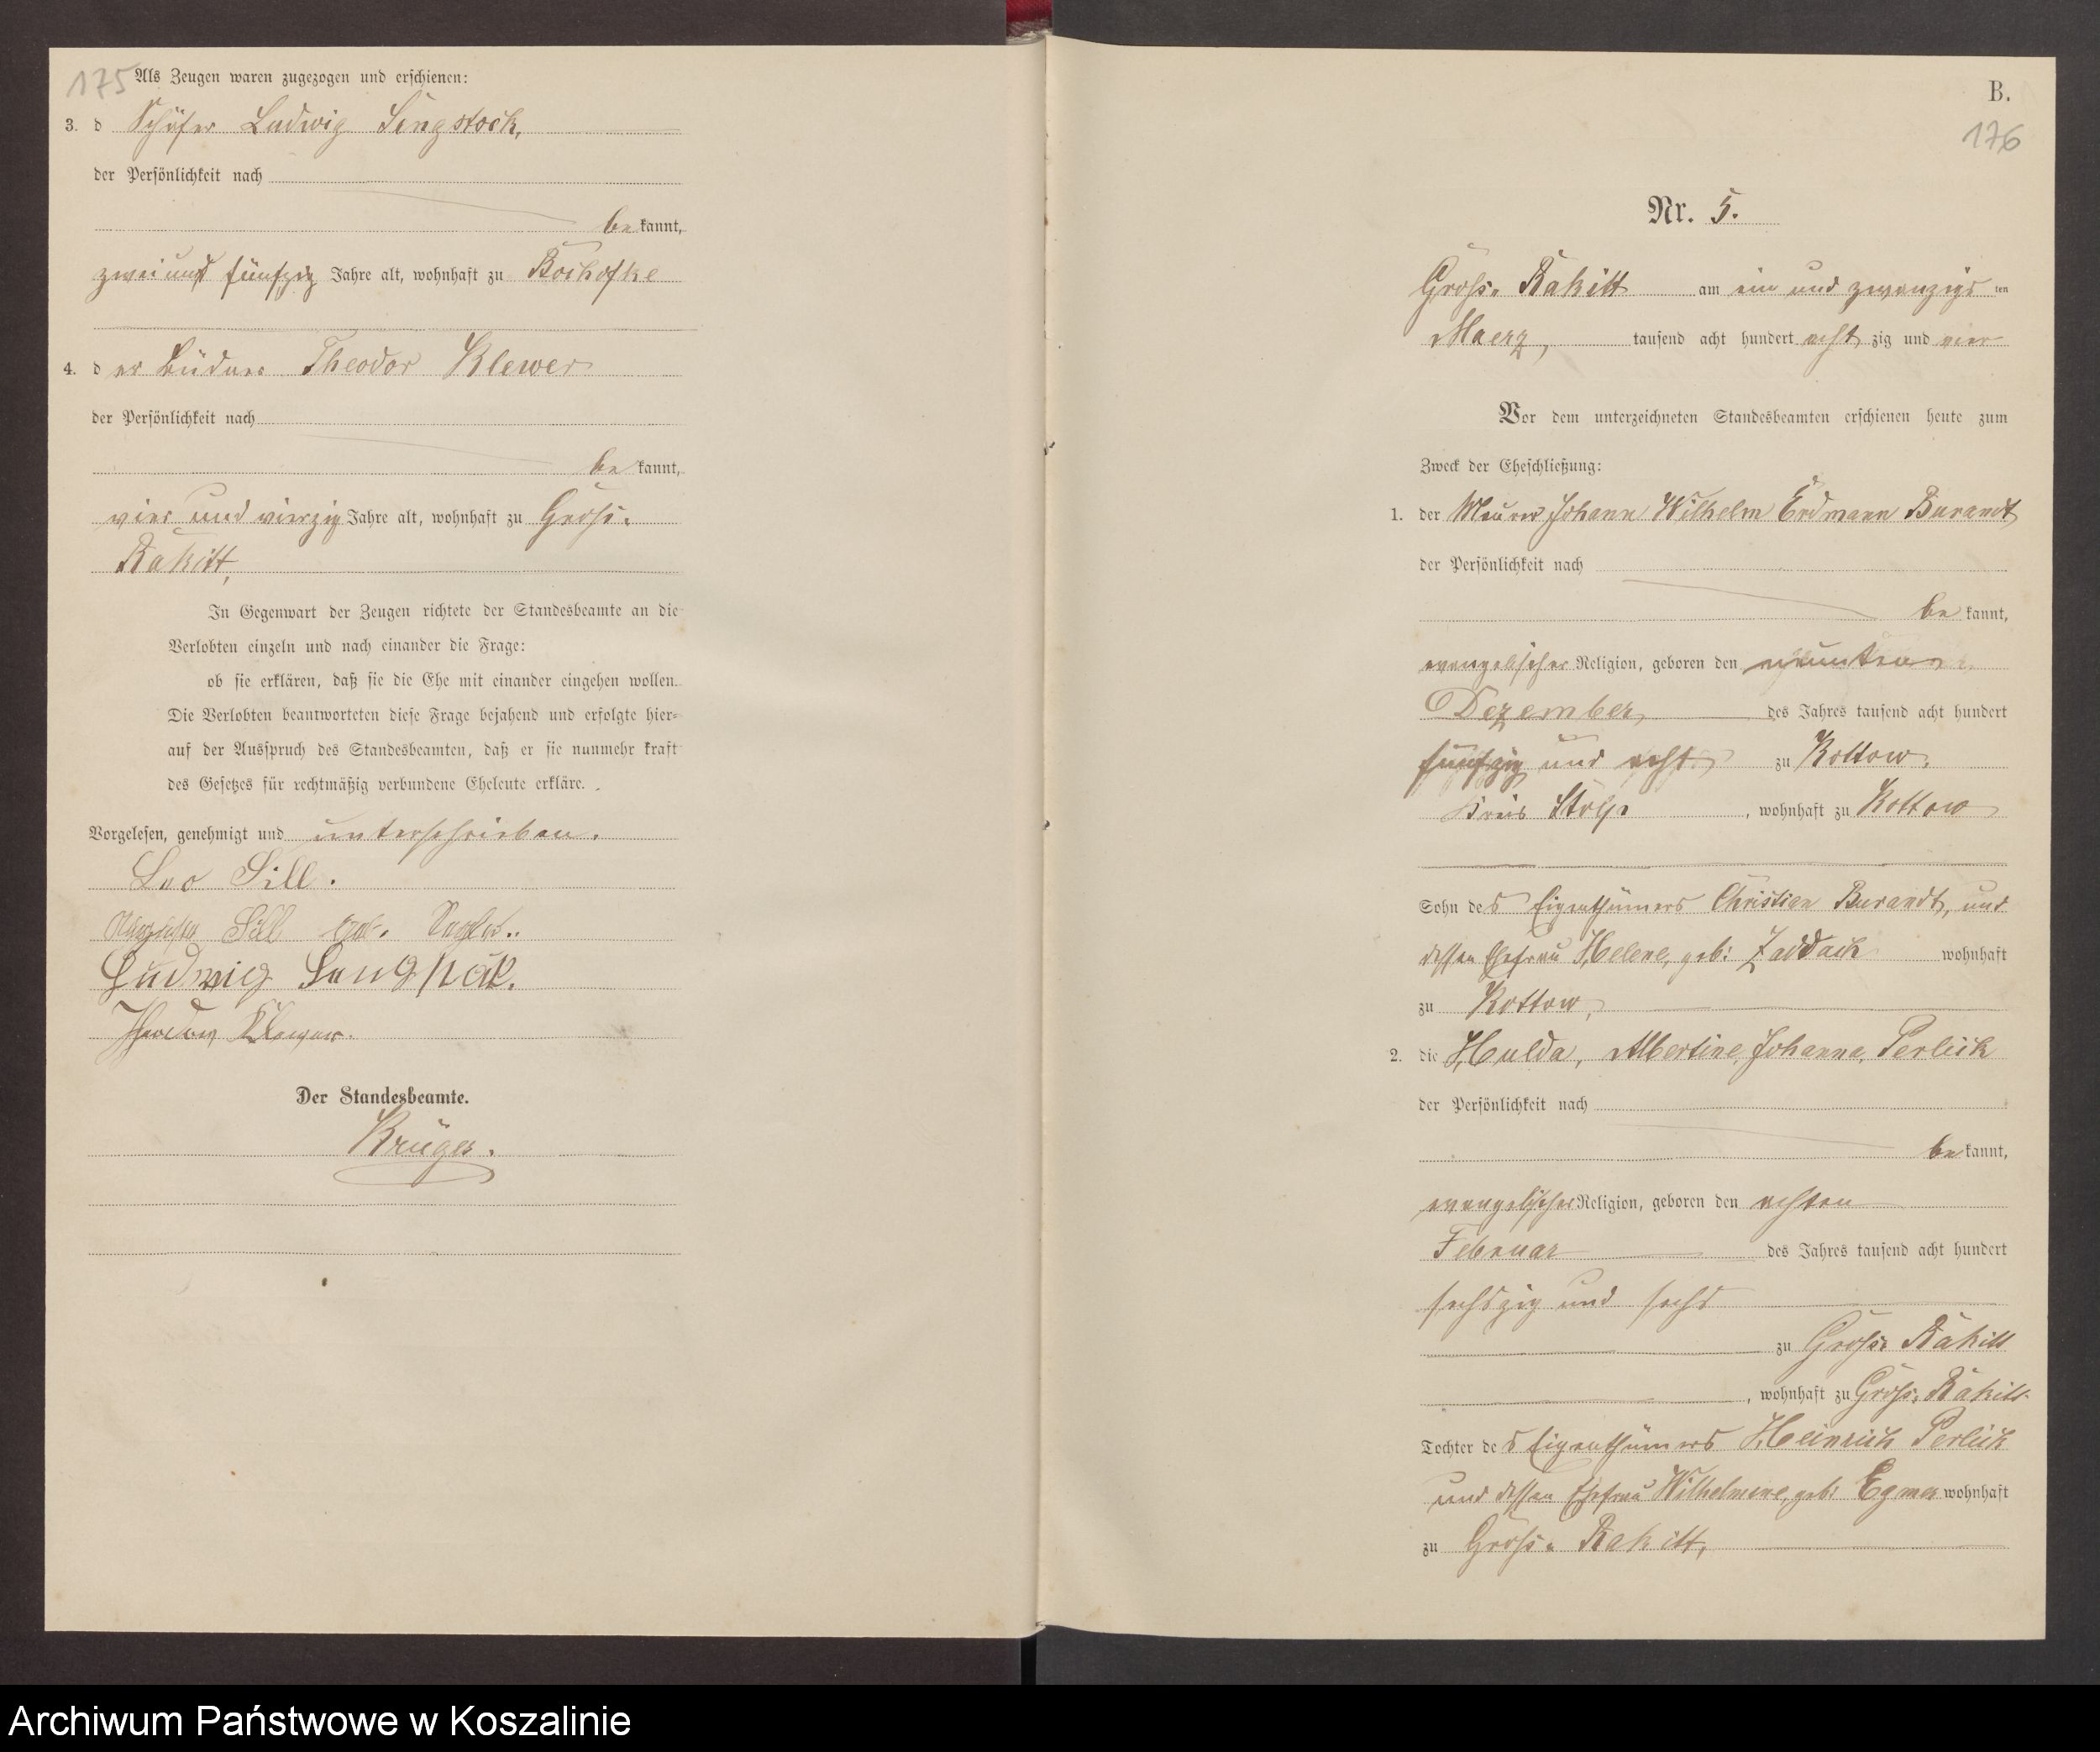 175
Als Zeugen waren zugezogen und erschienen:
3. d Schäfer Ludwig Sengstock,
der Persönlichkeit nach
be kannt,
zwei und fünfzig Jahre alt, wohnhaft zu
4. d er Büdner Theodor Klewer
der Persönlichkeit nach
be kannt,
vier und vierzig Jahre alt, wohnhaft zu Groß-
Rakitt,
In Gegenwart der Zeugen richtete der Standesbeamte an die
Verlobten einzeln und nach einander die Frage:
ob sie erklären, daß sie die Ehe mit einander eingehen wollen.
Die Verlobten beantworteten diese Frage bejahend und erfolgte hier-
auf der Ausspruch des Standesbeamten, daß er sie nunmehr kraft
des Gesetzes für rechtmäßig verbundene Eheleute erkläre.
Vorgelesen, genehmigt und unterschrieben.
Leo Sill.
Sill geb.
Ludwig
Theodor Klewer.
Der Standesbeamte.
Krüger.
B.
176
Nr. 5.
Groß- Rakitt am ein und zwanzigs ten
Maerz, tausend acht hundert acht zig und vier
Vor dem unterzeichneten Standesbeamten erschienen heute zum
Zweck der Eheschließung:
1. der Maurer Johann Wilhelm Erdmann Burandt
der Persönlichkeit nach
be kannt,
evangelischer Religion, geboren den neunten
Dezember, des Jahres tausend acht hundert
fünfzig und acht zu Kottow,
Kreis Stolp, wohnhaft zu Kottow
Sohn des Eigenthümers Christian Burandt, und
dessen Ehefrau Helene, geb: Zaddach wohnhaft
zu Kottow,
2. die Hulda, Albertine, Johanna, Perlick
der Persönlichkeit nach
be kannt,
evangelischer Religion, geboren den achten
Februar des Jahres tausend acht hundert
sechszig und sechs
zu Groß- Rakitt
, wohnhaft zu Groß- Rakitt
Tochter des Eigenthümers Heinrich Perlick
und dessen Ehefrau Wilhelmine, geb: Egmer wohnhaft
zu Groß- Rakitt,
Archiwum Państwowe w Koszalinie